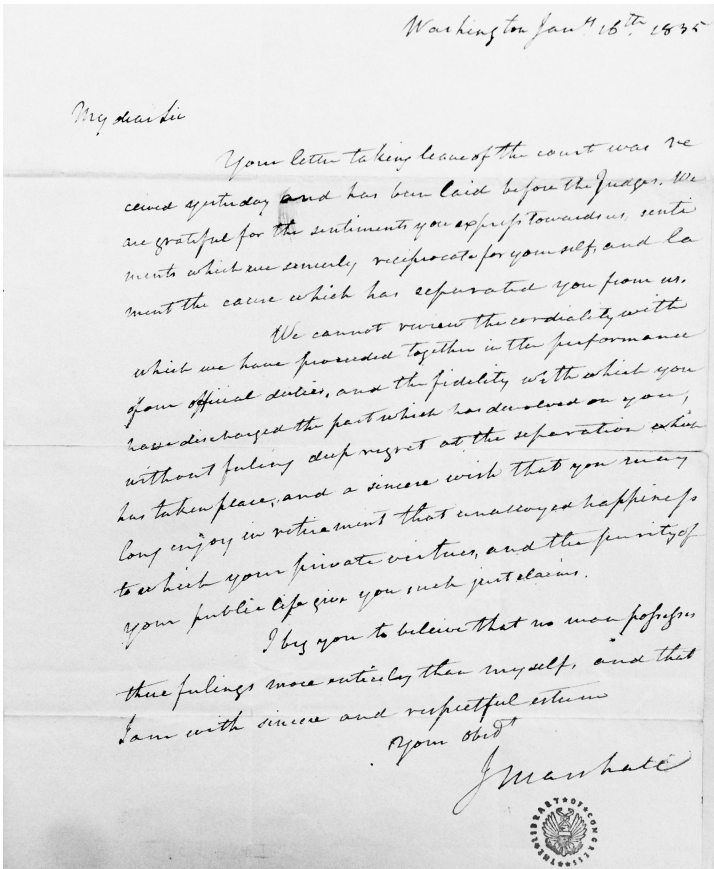 Washington Jany 16th 1835
My dear Sir
Your letter taking leave of the court was re
ceived yesterday and has been laid before the Judges. We
are grateful for the sentiments you express towards us, senti
ments which we sincerely reciprocate for yourself, and la
ment the cause which has separated you from us.
We cannot review the cordiality with
which we have proceeded together in the performance
of our official duties, and the fidelity with which you
have discharged the part which has devolved on you,
without feeling deep regret at the separation which
has taken place, and a sincere wish that you may
long enjoy in retirement that unalloyed happiness
to which your private virtues, and the purity of
your public life give you such just claims.
I beg you to beleive that no man possesses
these feelings more entirely than myself, and that
I am with sincere and respectful esteem
Your obedt
J Marshall
THE LIBRARY OF CONGRESS